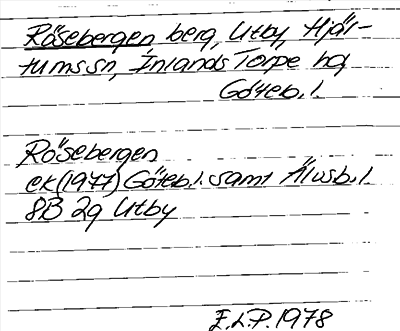 Rösebergen berg, Utby, Hjäl-
tums sn, Inlands Torpe hd
Göteb. l.
Rösebergen
ek (1977) Göteb. l. samt Älvsb. l.
8B 2g Utby
E.L.P. 1978